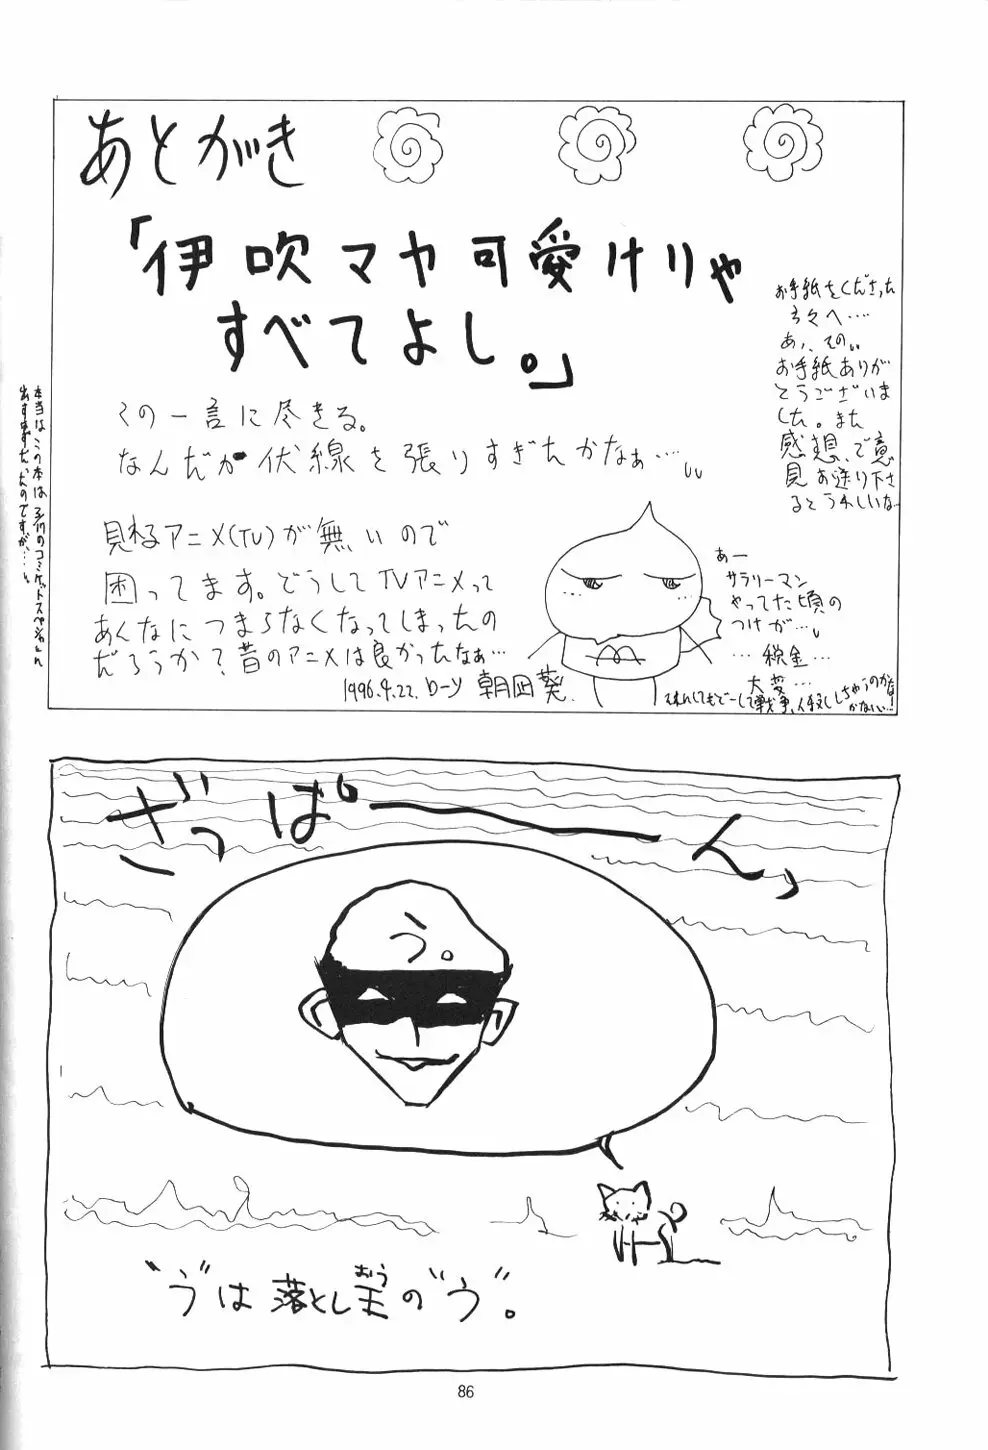 あとがき
「伊吹マヤ可愛けりゃ
すべてよし。」
この一言に尽きる。
なんだか伏線を張りすぎたかなぁ…。
見れるアニメ(TV)が無いので
困ってます。どうしてTVアニメって
あんなにつまらなくなってしまったの
だろうか？昔のアニメは良かったなぁ…
1996.4.22. ローソ 朝凪葵.
お手紙をくださった
方々へ….
あ、その、
お手紙ありが
とうございま
した。また
感想、ご意
見お送り下さ
るとうれしいな
あー
サラリーマン
やってた頃の
つけが…
…税金…
大変…
本当はこの本は3/17のコミケットスペシャルに
出すはずだったのですが…
ざっぱーーん」
う。
“う”は落とし王の“う”。
おう
86